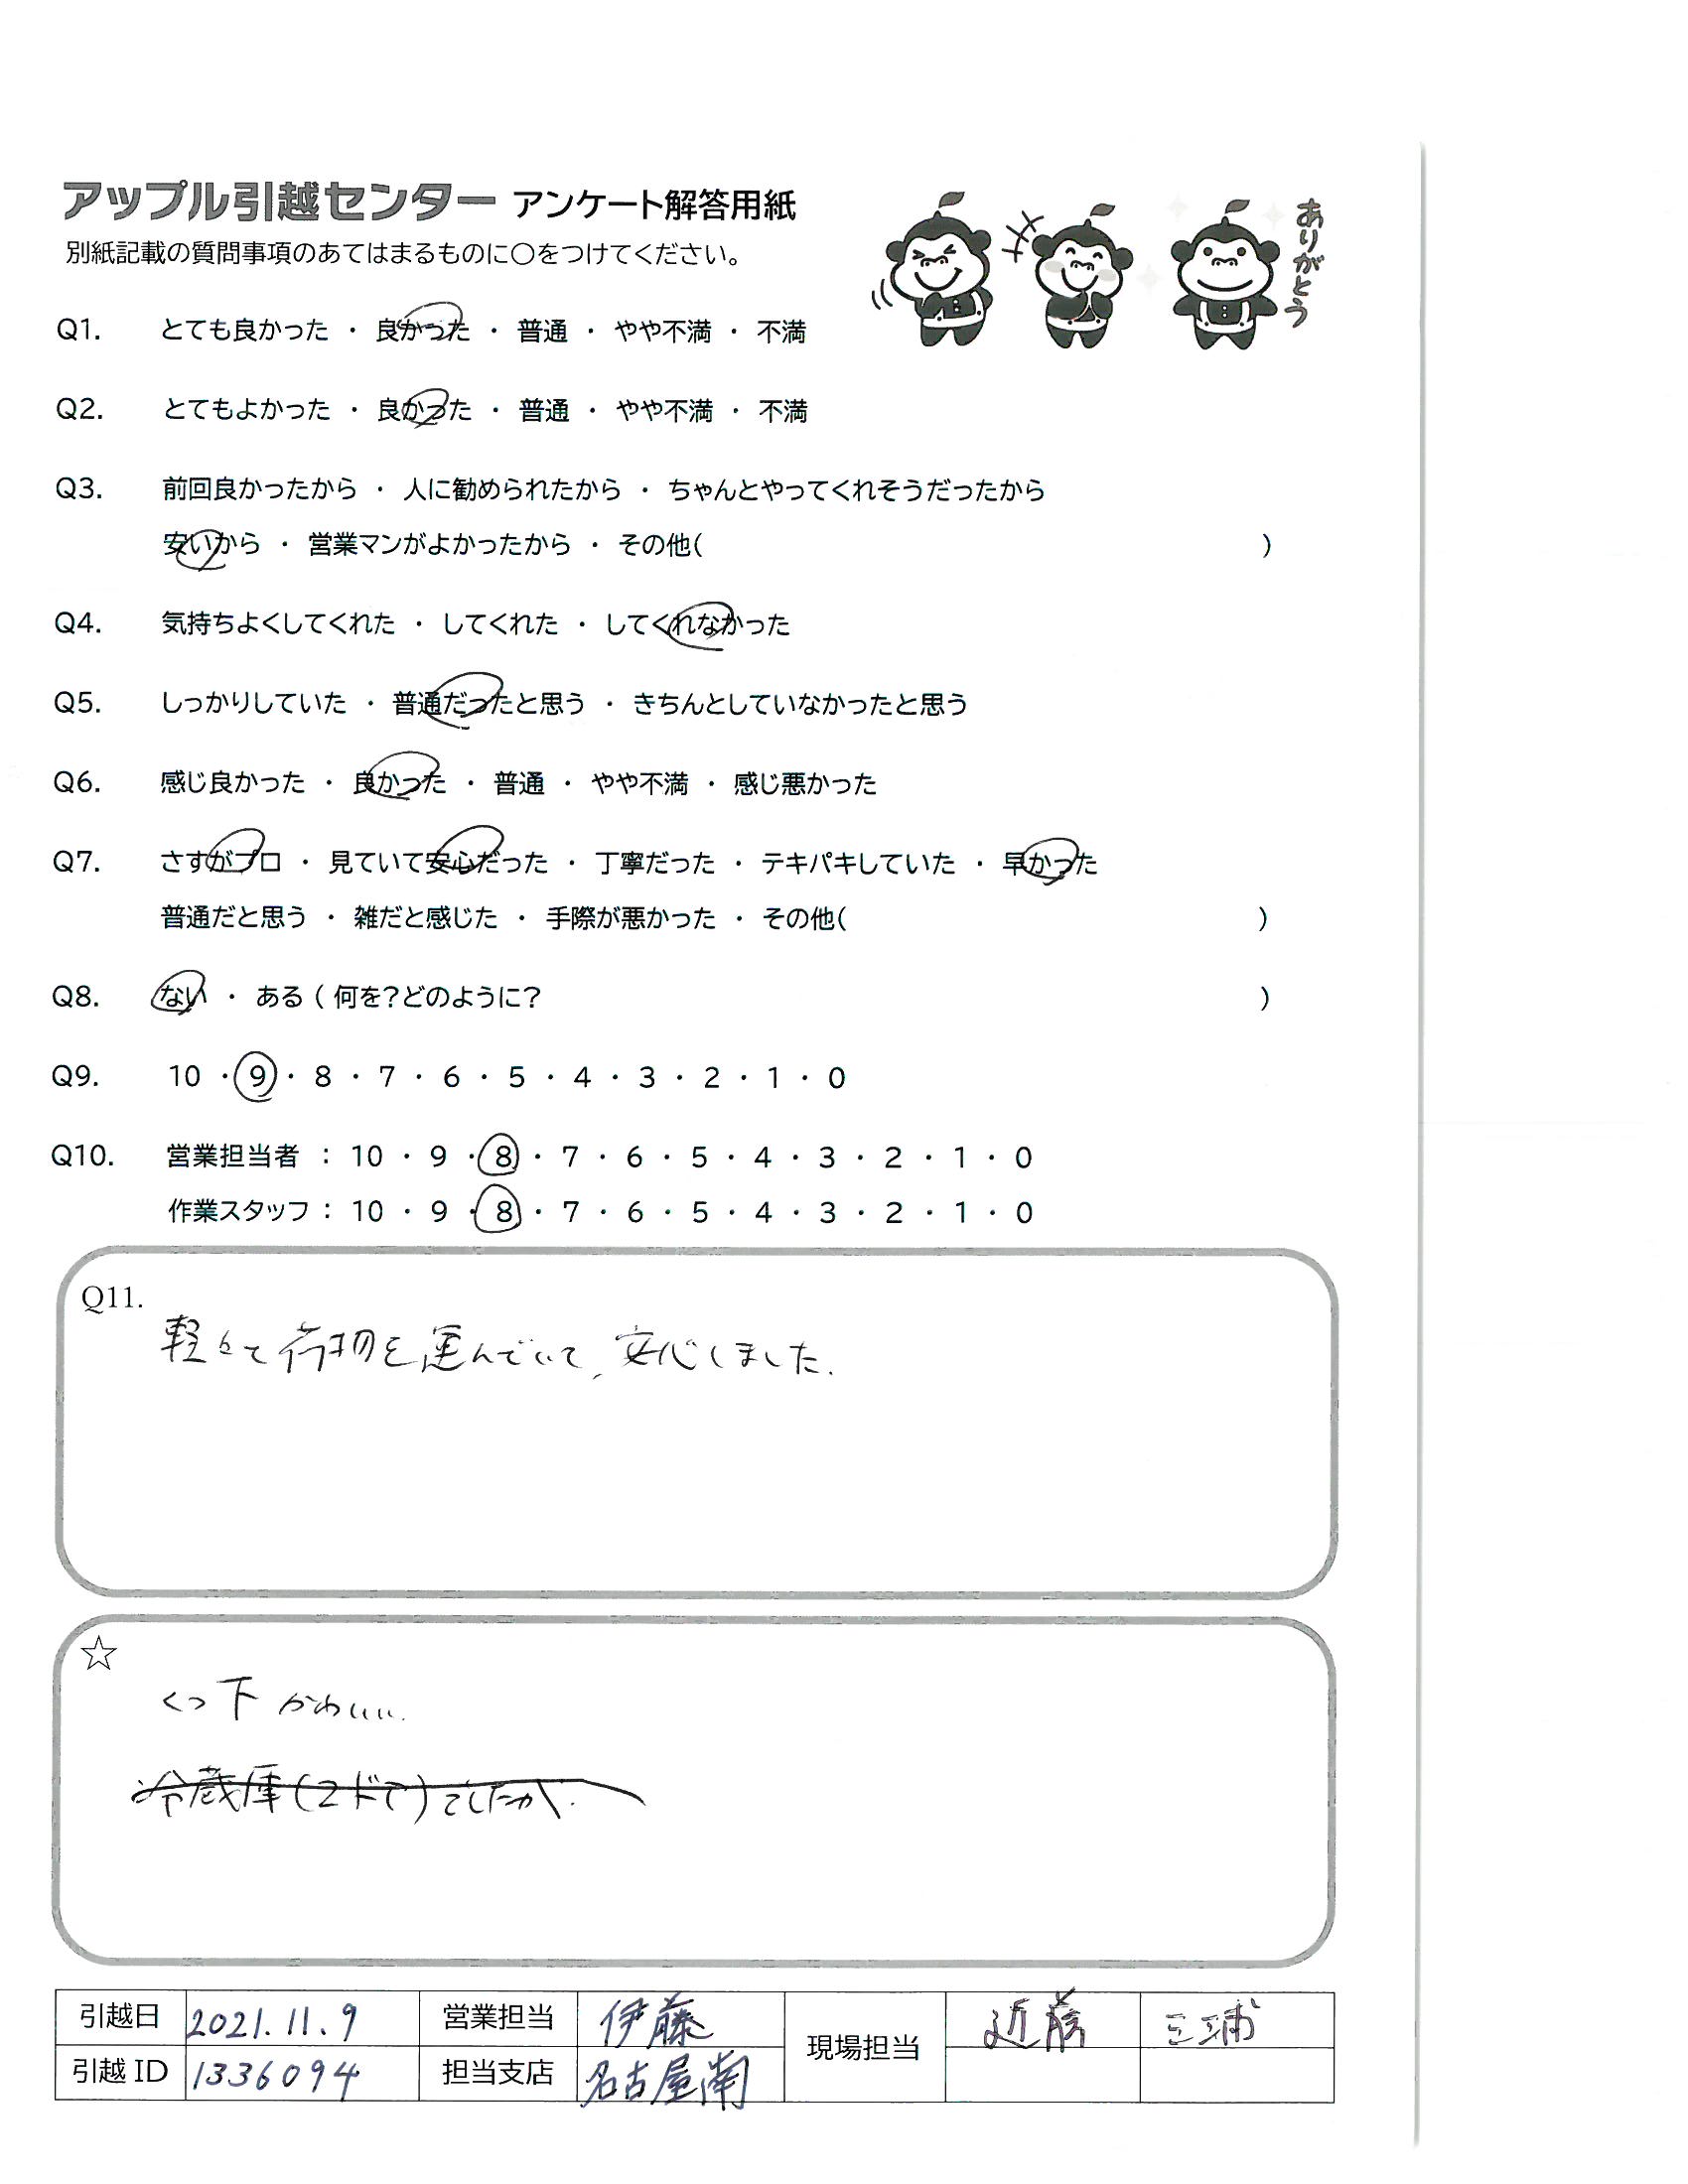 アップル引越センター アンケート解答用紙
ありがとう
別紙記載の質問事項のあてはまるものに○をつけてください。
Q1. とても良かった ・ 良かった ・ 普通 ・ やや不満 ・ 不満
Q2. とてもよかった ・ 良かった ・ 普通 ・ やや不満 ・ 不満
Q3. 前回良かったから ・ 人に勧められたから ・ ちゃんとやってくれそうだったから
安いから ・ 営業マンがよかったから ・ その他( )
Q4. 気持ちよくしてくれた ・ してくれた ・ してくれなかった
Q5. しっかりしていた ・ 普通だったと思う ・ きちんとしていなかったと思う
Q6. 感じ良かった ・ 良かった ・ 普通 ・ やや不満 ・ 感じ悪かった
Q7. さすがプロ ・ 見ていて安心だった ・ 丁寧だった ・ テキパキしていた ・ 早かった
普通だと思う ・ 雑だと感じた ・ 手際が悪かった ・ その他( )
Q8. ない ・ ある ( 何を?どのように? )
Q9. 10 ・ 9 ・ 8 ・ 7 ・ 6 ・ 5 ・ 4 ・ 3 ・ 2 ・ 1 ・ 0
Q10. 営業担当者 : 10 ・ 9 ・ 8 ・ 7 ・ 6 ・ 5 ・ 4 ・ 3 ・ 2 ・ 1 ・ 0
作業スタッフ : 10 ・ 9 ・ 8 ・ 7 ・ 6 ・ 5 ・ 4 ・ 3 ・ 2 ・ 1 ・ 0
Q11.
軽々と荷物を運んでいて、安心しました.
☆
くつ下 かわいい.
冷蔵庫(2ドア)でしたが.
引越日 2021.11.9 営業担当 伊藤 現場担当 近藤 三浦
引越ID 1336094 担当支店 名古屋南